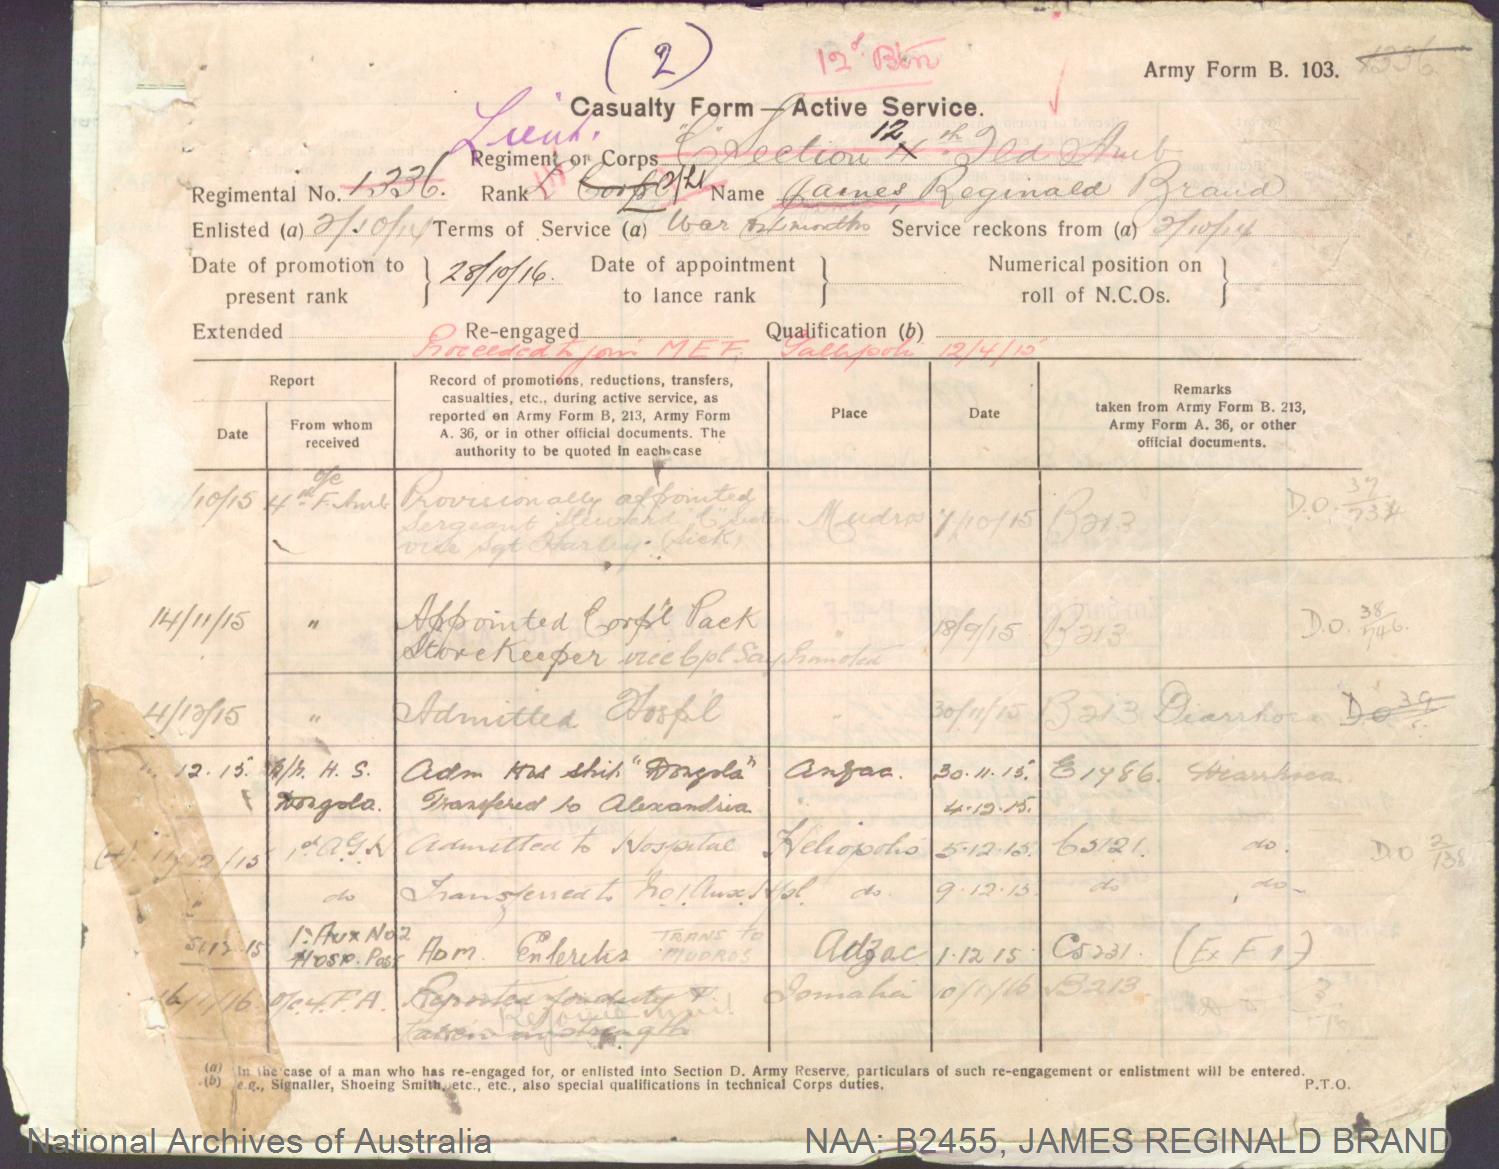 (2)
12th Btn
Army Form B. 103.
1336
Casualty Form — Active Service.
Lieut.
Regiment or Corps "C" Section 12 4th Fld Amb
Regimental No. 1336. Rank L Corpl 2/Lt Name James, Reginald Brand
Enlisted (a) 2/10/14 Terms of Service (a) War & 4 months Service reckons from (a) 2/10/14
Date of promotion to present rank } 28/10/16. Date of appointment to lance rank } Numerical position on roll of N.C.Os. }
Extended Re-engaged Qualification (b)
Proceeded to join M E F. Gallipoli 12/4/15
Report
Date
From whom received
Record of promotions, reductions, transfers, casualties, etc., during active service, as reported on Army Form B, 213, Army Form A. 36, or in other official documents. The authority to be quoted in each case
Place
Date
Remarks taken from Army Form B. 213, Army Form A. 36, or other official documents.
/10/15 o/c 4th F. Amb Provisionally appointed Mudros 1/10/15 B213 D.O. 37/734
Sergeant Steward "C" Section
vice Sgt Harley (sick)
14/11/15 " Appointed Corp'l Pack " 18/9/15 B213 D.O. 38/746.
Storekeeper vice Cpl Say promoted
4/12/15 " Admitted Hosp'l " 30/11/15 B213 Diarrhoea D.O 39
12.15. H. S. Adm Hos ship "Dongola" Anzac. 30.11.15. E1486. Diarrhoea
Dongola. Transfered to Alexandria 4.12.15.
11/12/15 1st A.G.H Admitted to Hospital Heliopolis 5.12.15. C5121. do. D.O 2/138
" do Transferred to No. 1 Aux. Hpl. do. 9.12.15. do do
5.12.15 1st Aux No 2 Hosp. Adm. Enteritis TRANS TO MUDROS Adzac 1.12.15 C5231 (Ex F 1)
16/1/16 o/c 4 F. A. Reported for duty & Ismailia 10/1/16 B213
Rejoined unit
taken on strength
(a) In the case of a man who has re-engaged for, or enlisted into Section D. Army Reserve, particulars of such re-engagement or enlistment will be entered.
(b) e.g., Signaller, Shoeing Smith, etc., etc., also special qualifications in technical Corps duties.
P.T.O.
National Archives of Australia
NAA: B2455, JAMES REGINALD BRAND